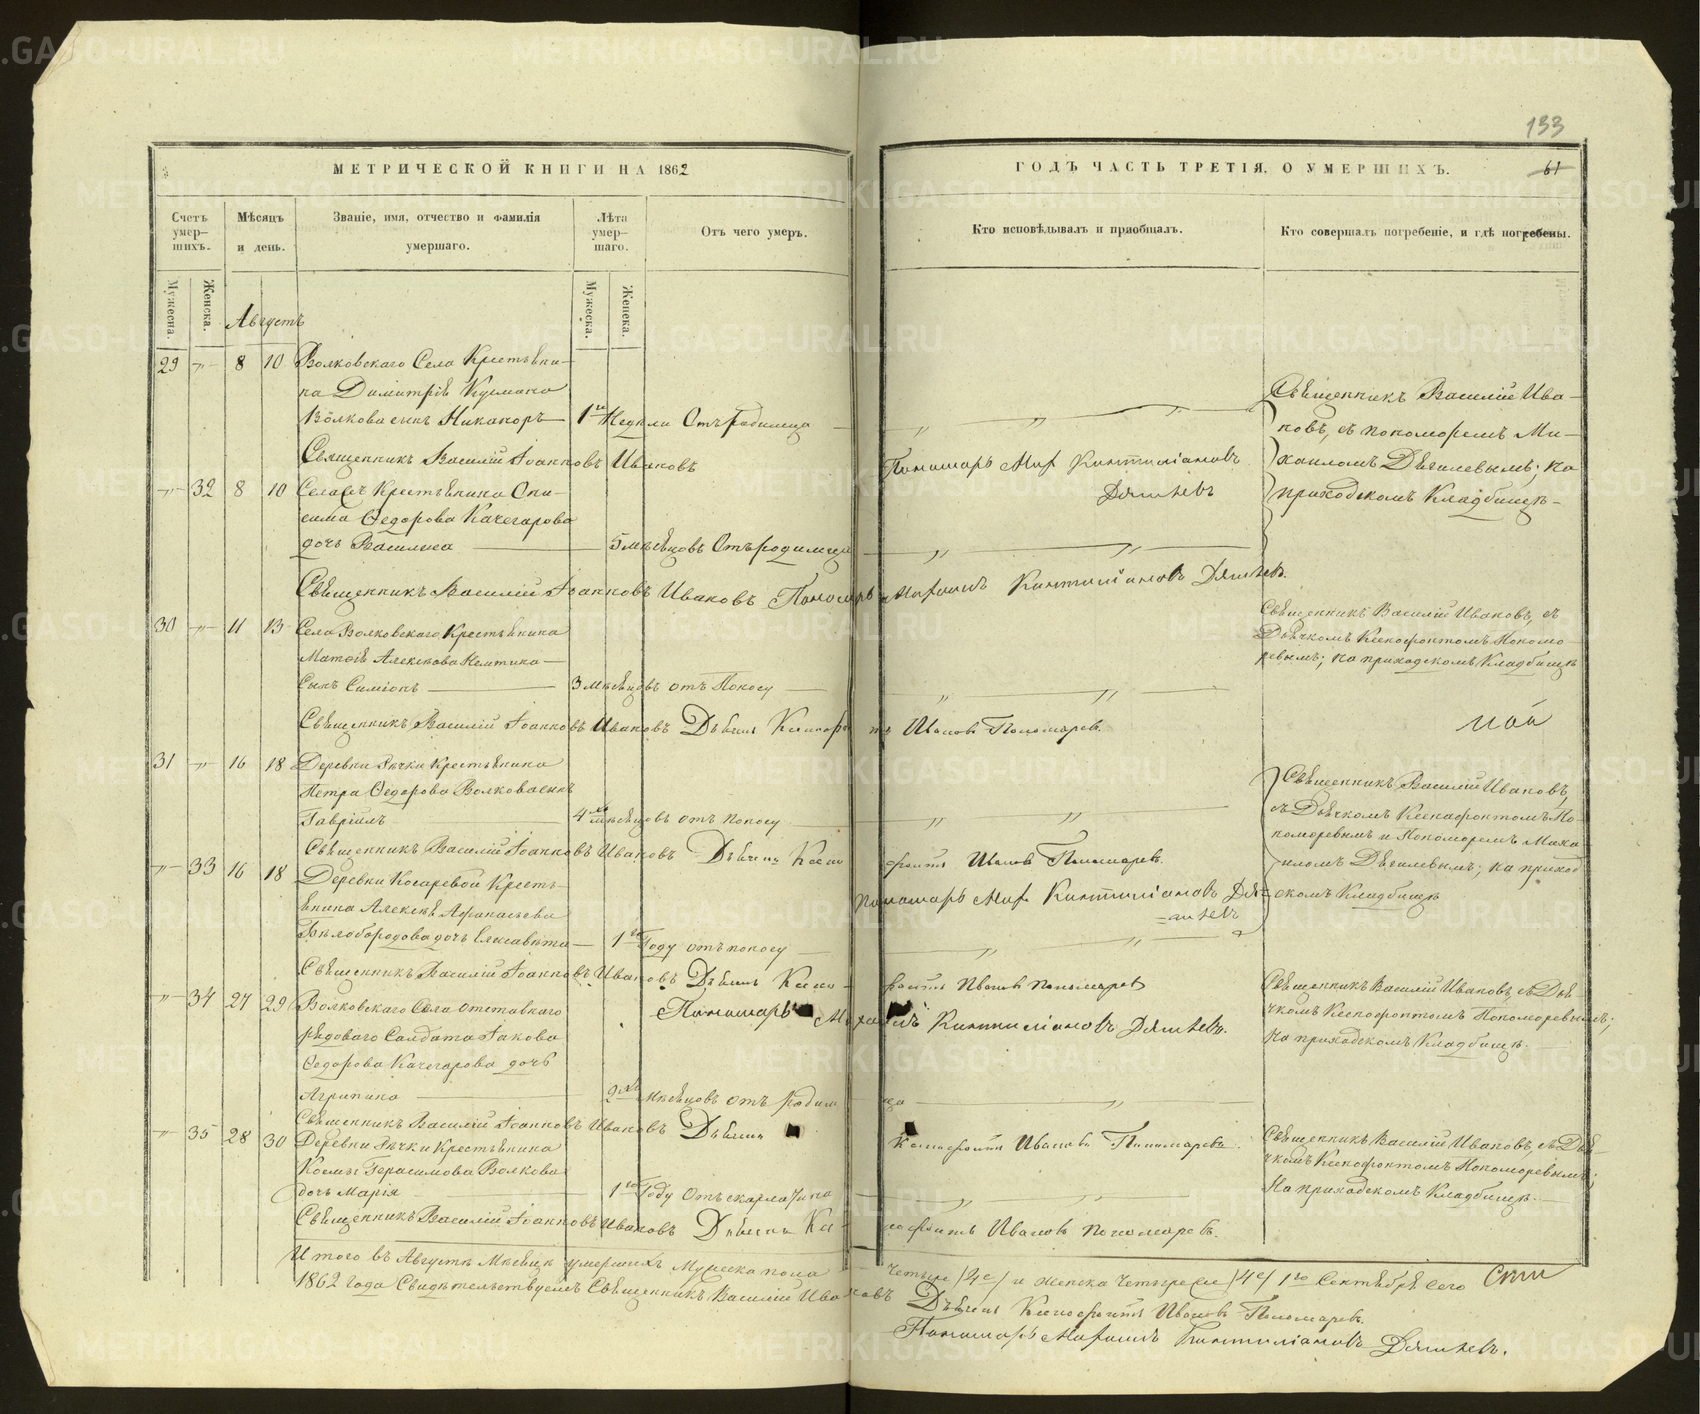 133
МЕТРИЧЕСКОЙ КНИГИ НА 1862
ГОДЪ ЧАСТЬ ТРЕТІЯ, О УМЕРШИХЪ.
61
Счетъ умер-шихъ.
Мѣсяцъ и день.
Званіе, имя, отчество и фамилія умершаго.
Лѣта умер-шаго.
Отъ чего умеръ.
Кто исповѣдывалъ и пріобщалъ.
Кто совершалъ погребеніе, и гдѣ погребены.
Мужеска.
Женска.
Мужеска.
Женска.
Августъ
29 -„- 8 10 Волковскаго Села Крестьяни-
на Димитрія Кузмина
Волкова сынъ Никаноръ — 1 Недѣли Отъ родимца — „ „
Священникъ Василій Іоанновъ Ивановъ
Пономарь Мих Кинтиліановъ
Священникъ Василій Ива-
новъ, съ пономоремъ Ми-
хаиломъ; на
приходскомъ Кладбищѣ -
-„- 32 8 10 Села Крестьянина Они-
сима Ѳедорова Качегарова
дочь Василиса — 5 мѣсяцовъ Отъ родимца — „ „
Священникъ Василій Іоанновъ Ивановъ Пономарь Михаилъ Кинтиліановъ
30 -„- 11 13 Села Волковскаго Крестьянина
Матѳія Алексѣова
Сынъ Симіонъ — 3 мѣсяцовъ отъ Поносу — „ „
Священникъ Василій Ивановъ, съ
Дьячкомъ Ксенофонтомъ Пономо-
ревымъ; на приходскомъ Кладбищѣ
Священникъ Василій Іоанновъ Ивановъ Дьячекъ Ксенофонтъ Ивановъ Пономаревъ.
31 -„- 16 18 Деревни Рѣчки Крестьянина
Петра Ѳедорова Волкова сынъ
Гавріилъ — 4 мѣсяцовъ отъ поносу — „ „
Священникъ Василій Ивановъ,
съ Дьячкомъ Ксенофонтомъ По-
номоревымъ и Пономоремъ Миха-
иломъ; на приход-
скомъ Кладбищѣ
Священникъ Василій Іоанновъ Ивановъ Дьячекъ Ксенофонтъ Ивановъ Пономаревъ.
Пономарь Мих Кинтиліановъ
-„- 33 16 18 Деревни Косаревой Кресть-
янина Алексѣя Афанасьева
Бѣлобородова дочь Елисавета — 1 Году отъ поносу — „ „
Священникъ Василій Іоанновъ Ивановъ Дьячекъ Ксенофонтъ Ивановъ Пономаревъ
Пономарь Михаилъ Кинтиліановъ
-„- 34 27 29 Волковскаго Села отставнаго
рядоваго Салдата Іакова
Ѳедорова Качегарова дочь
Агрипина — 2 мѣсяцовъ отъ родимца — „
Священникъ Василій Ивановъ, съ Дья-
чкомъ Ксенофонтомъ Пономоревымъ;
На приходскомъ Кладбищѣ.
Священникъ Василій Іоанновъ Ивановъ Дьячекъ Ксенофонтъ Ивановъ Пономаревъ.
-„- 35 28 30 Деревни Рѣчки Крестьянина
Космы Герасимова Волкова
дочь Марія — 1 Году Отъ скарлатина — „ „
Священникъ Василій Ивановъ, съ Дья-
чкомъ Ксенофонтомъ Пономоревымъ;
На приходскомъ Кладбищѣ.
Священникъ Василій Іоанновъ Ивановъ Дьячекъ Ксенофонтъ Ивановъ Пономаревъ.
Итого въ Августѣ Мѣсяцѣ умершихъ Мужеска пола четыре /4е/ и женска четыре /4е/ 1го Сентября сего
1862 года Свидѣтельствуемъ Священникъ Василій Ивановъ Дьячекъ Ксенофонтъ Ивановъ Пономаревъ.
Пономарь Михаилъ Кинтиліановъ
METRIKI.GASO-URAL.RU